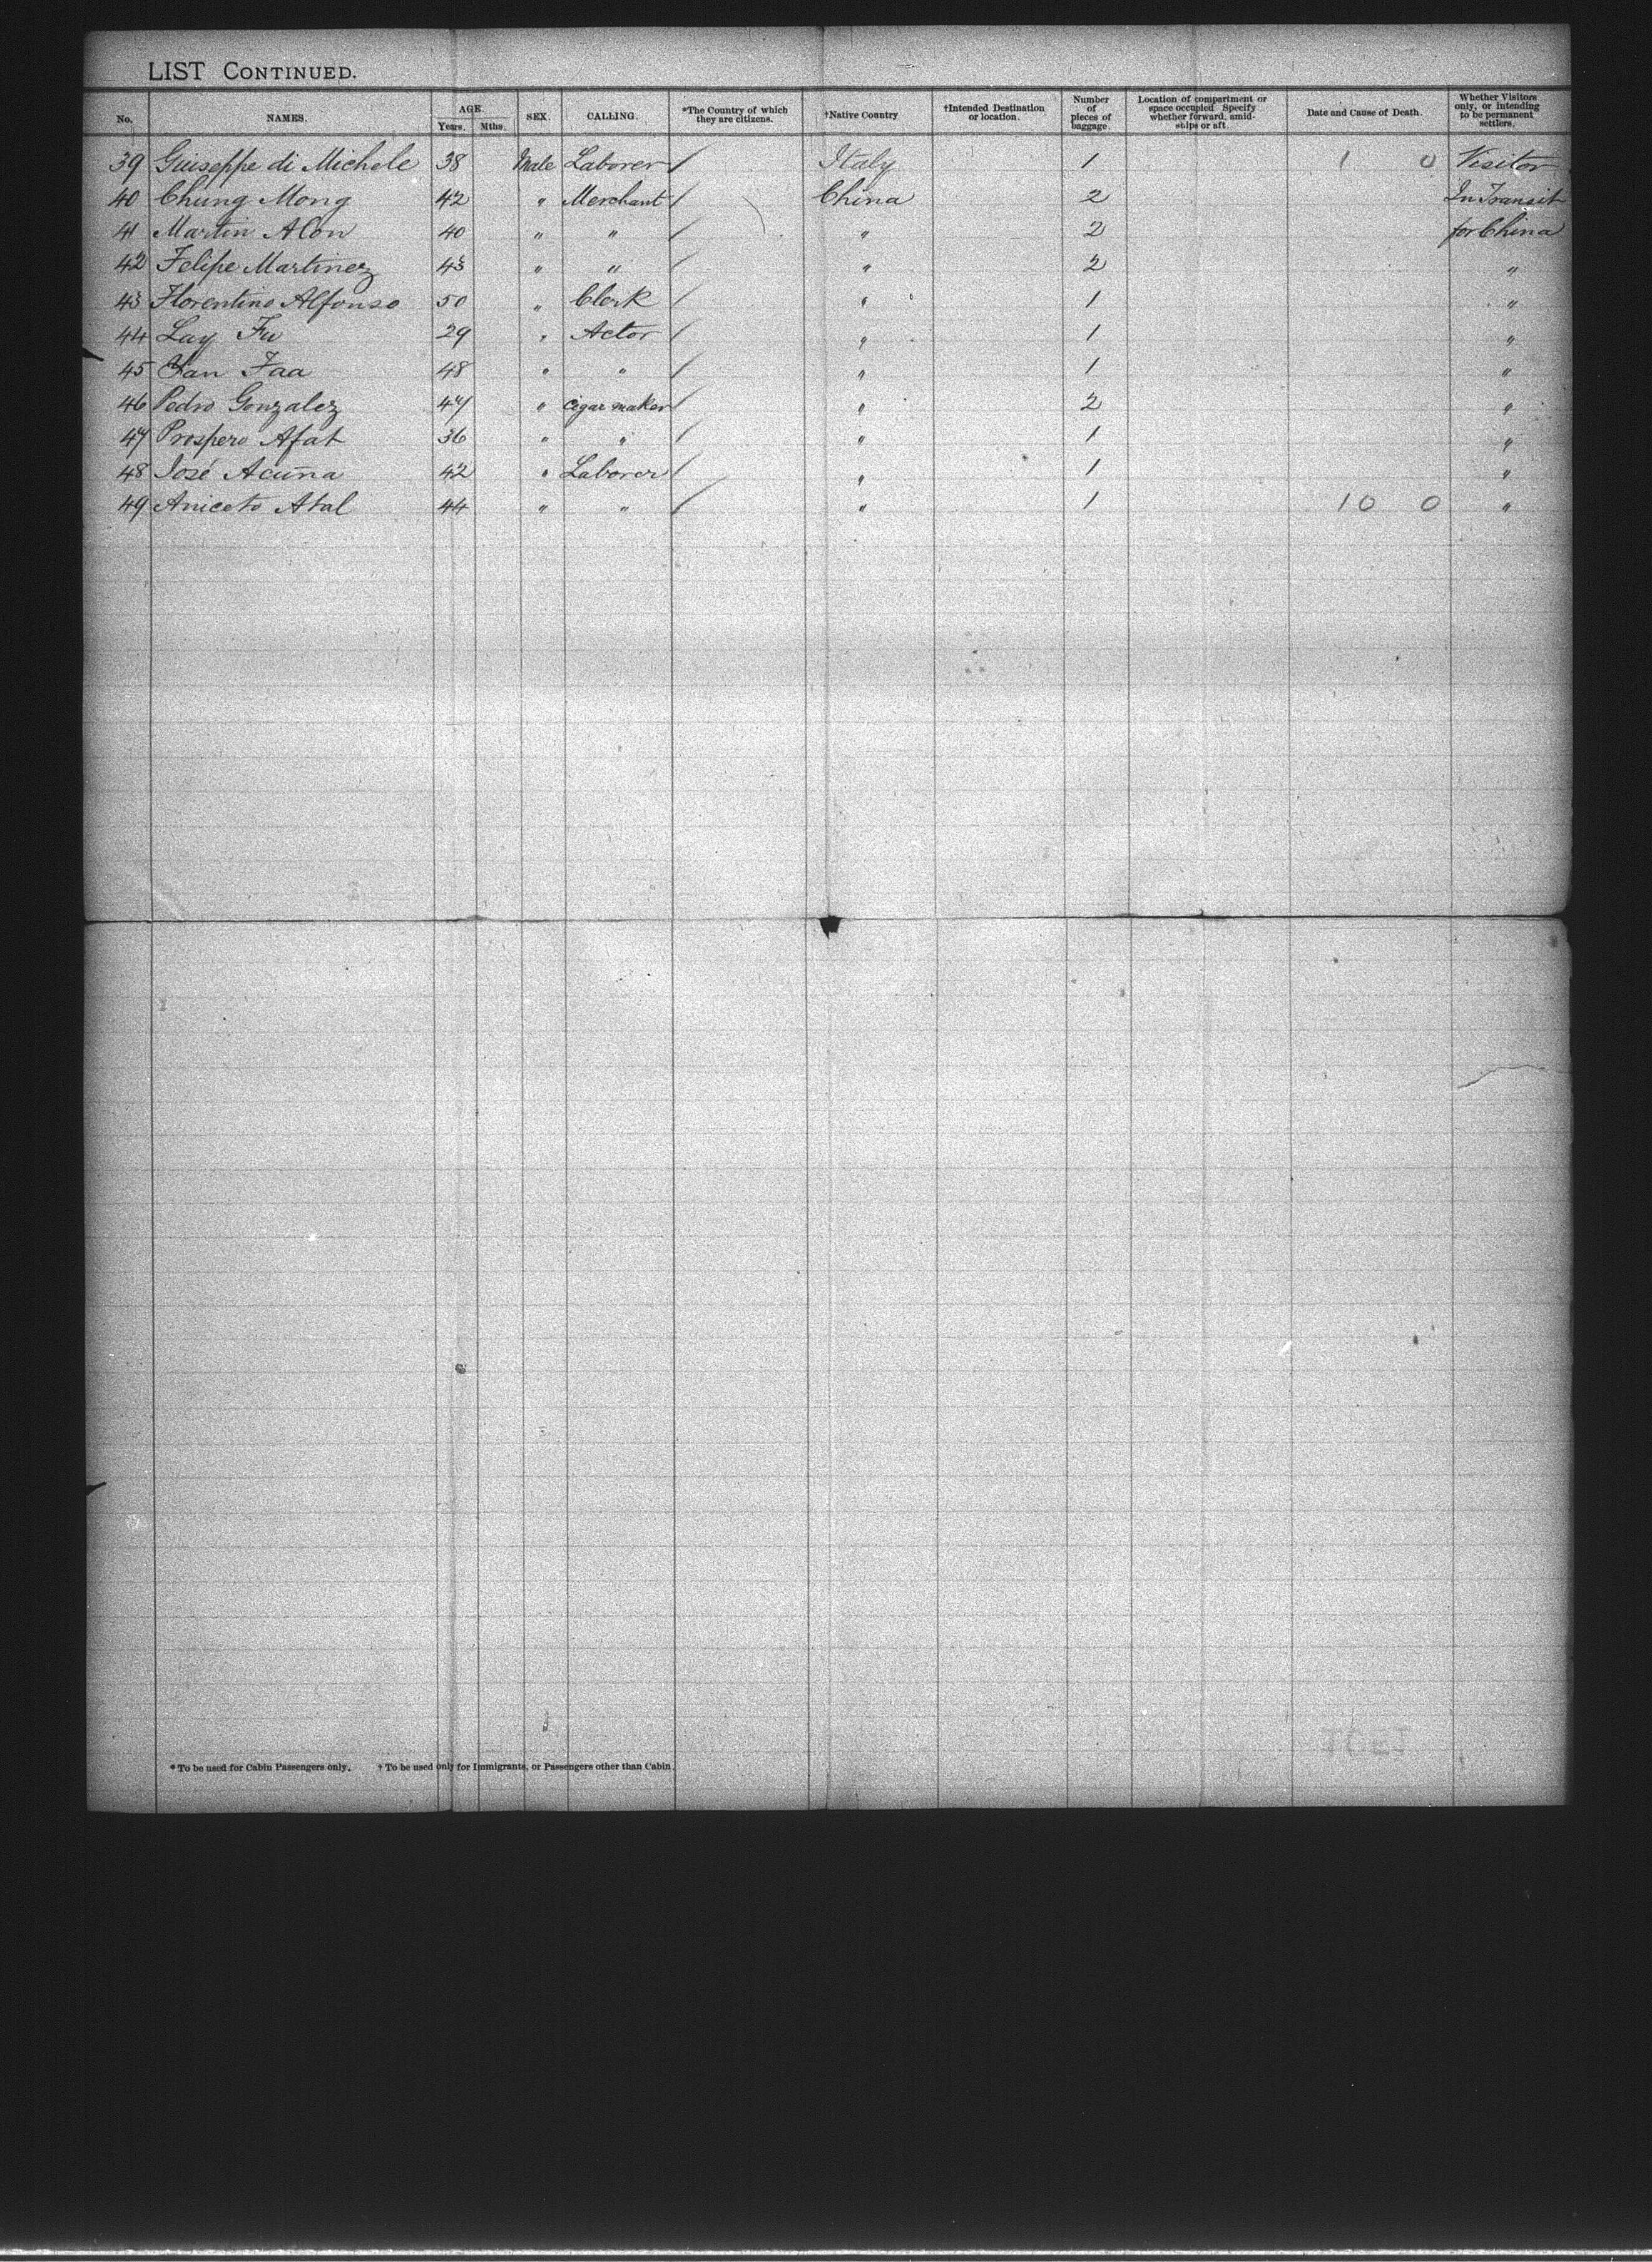 LIST CONTINUED.
No. NAMES. AGE. Years. Mths. SEX. CALLING. *The Country of which they are citizens. †Native Country †Intended Destination or location. Number of pieces of baggage. Location of compartment or space occupied Specify whether forward, amidships or aft. Date and Cause of Death. Whether Visitors only, or intending to be permanent settlers.
39 Guiseppe di Michele 38 Male Laborer / Italy 1 1 0 Visitor
40 Chung Mong 42 " Merchant / China 2 In Transit
41 Martin Alon 40 " " / " 2 for China
42 Felipe Martinez 43 " " / " 2 "
43 Florentino Alfonso 50 " Clerk / " 1 "
44 Lay Fu 29 " Actor / " 1 "
45 Faa 48 " " / " 1 "
46 Pedro Gonzalez 47 " Cigar maker / " 2 "
47 Prospero Afat 36 " " / " 1 "
48 José Acuña 42 " Laborer / " 1 "
49 Aniceto Atal 44 " " / " 1 10 0 "
*To be used for Cabin Passengers only. †To be used only for Immigrants, or Passengers other than Cabin.